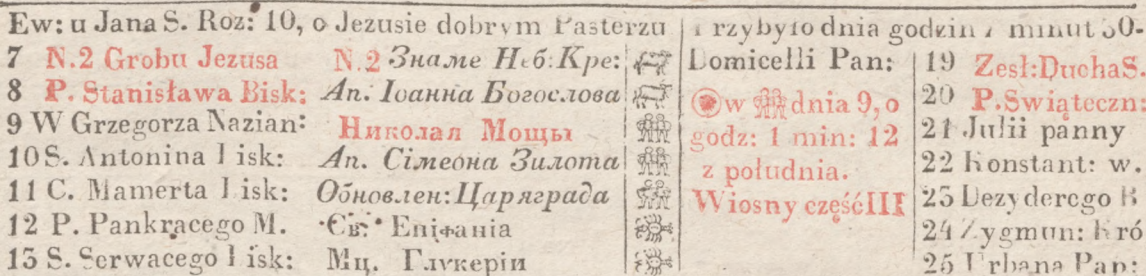 Ew: u Jana S. Roz: 10, o Jezusie dobrym Pasterzu
7 N.2 Grobu Jezusa N.2 Знаме Неб: Кре:
8 P. Stanisława Bisk: Ап. Іоанна Богослова
9 W Grzegorza Nazian: Николая Мощы
10 S. Antonina Bisk: Ап. Сімеона Зилота
11 C. Mamerta Bisk: Обновлен: Царяграда
12 P. Pankracego M. Св: Епіфанія
13 S. Serwacego Bisk: Мц. Глукеріи
Przybyło dnia godzin 7 minut 30.
Domicelli Pan:
w dnia 9, o
godz: 1 min: 12
z południa.
Wiosny część III
19 Zesł: Ducha S.
20 P. Swiąteczn
21 Julii panny
22 Konstant: w.
23 Dezyderego B
24 Zygmun: Kró
25 Urbana Pap: